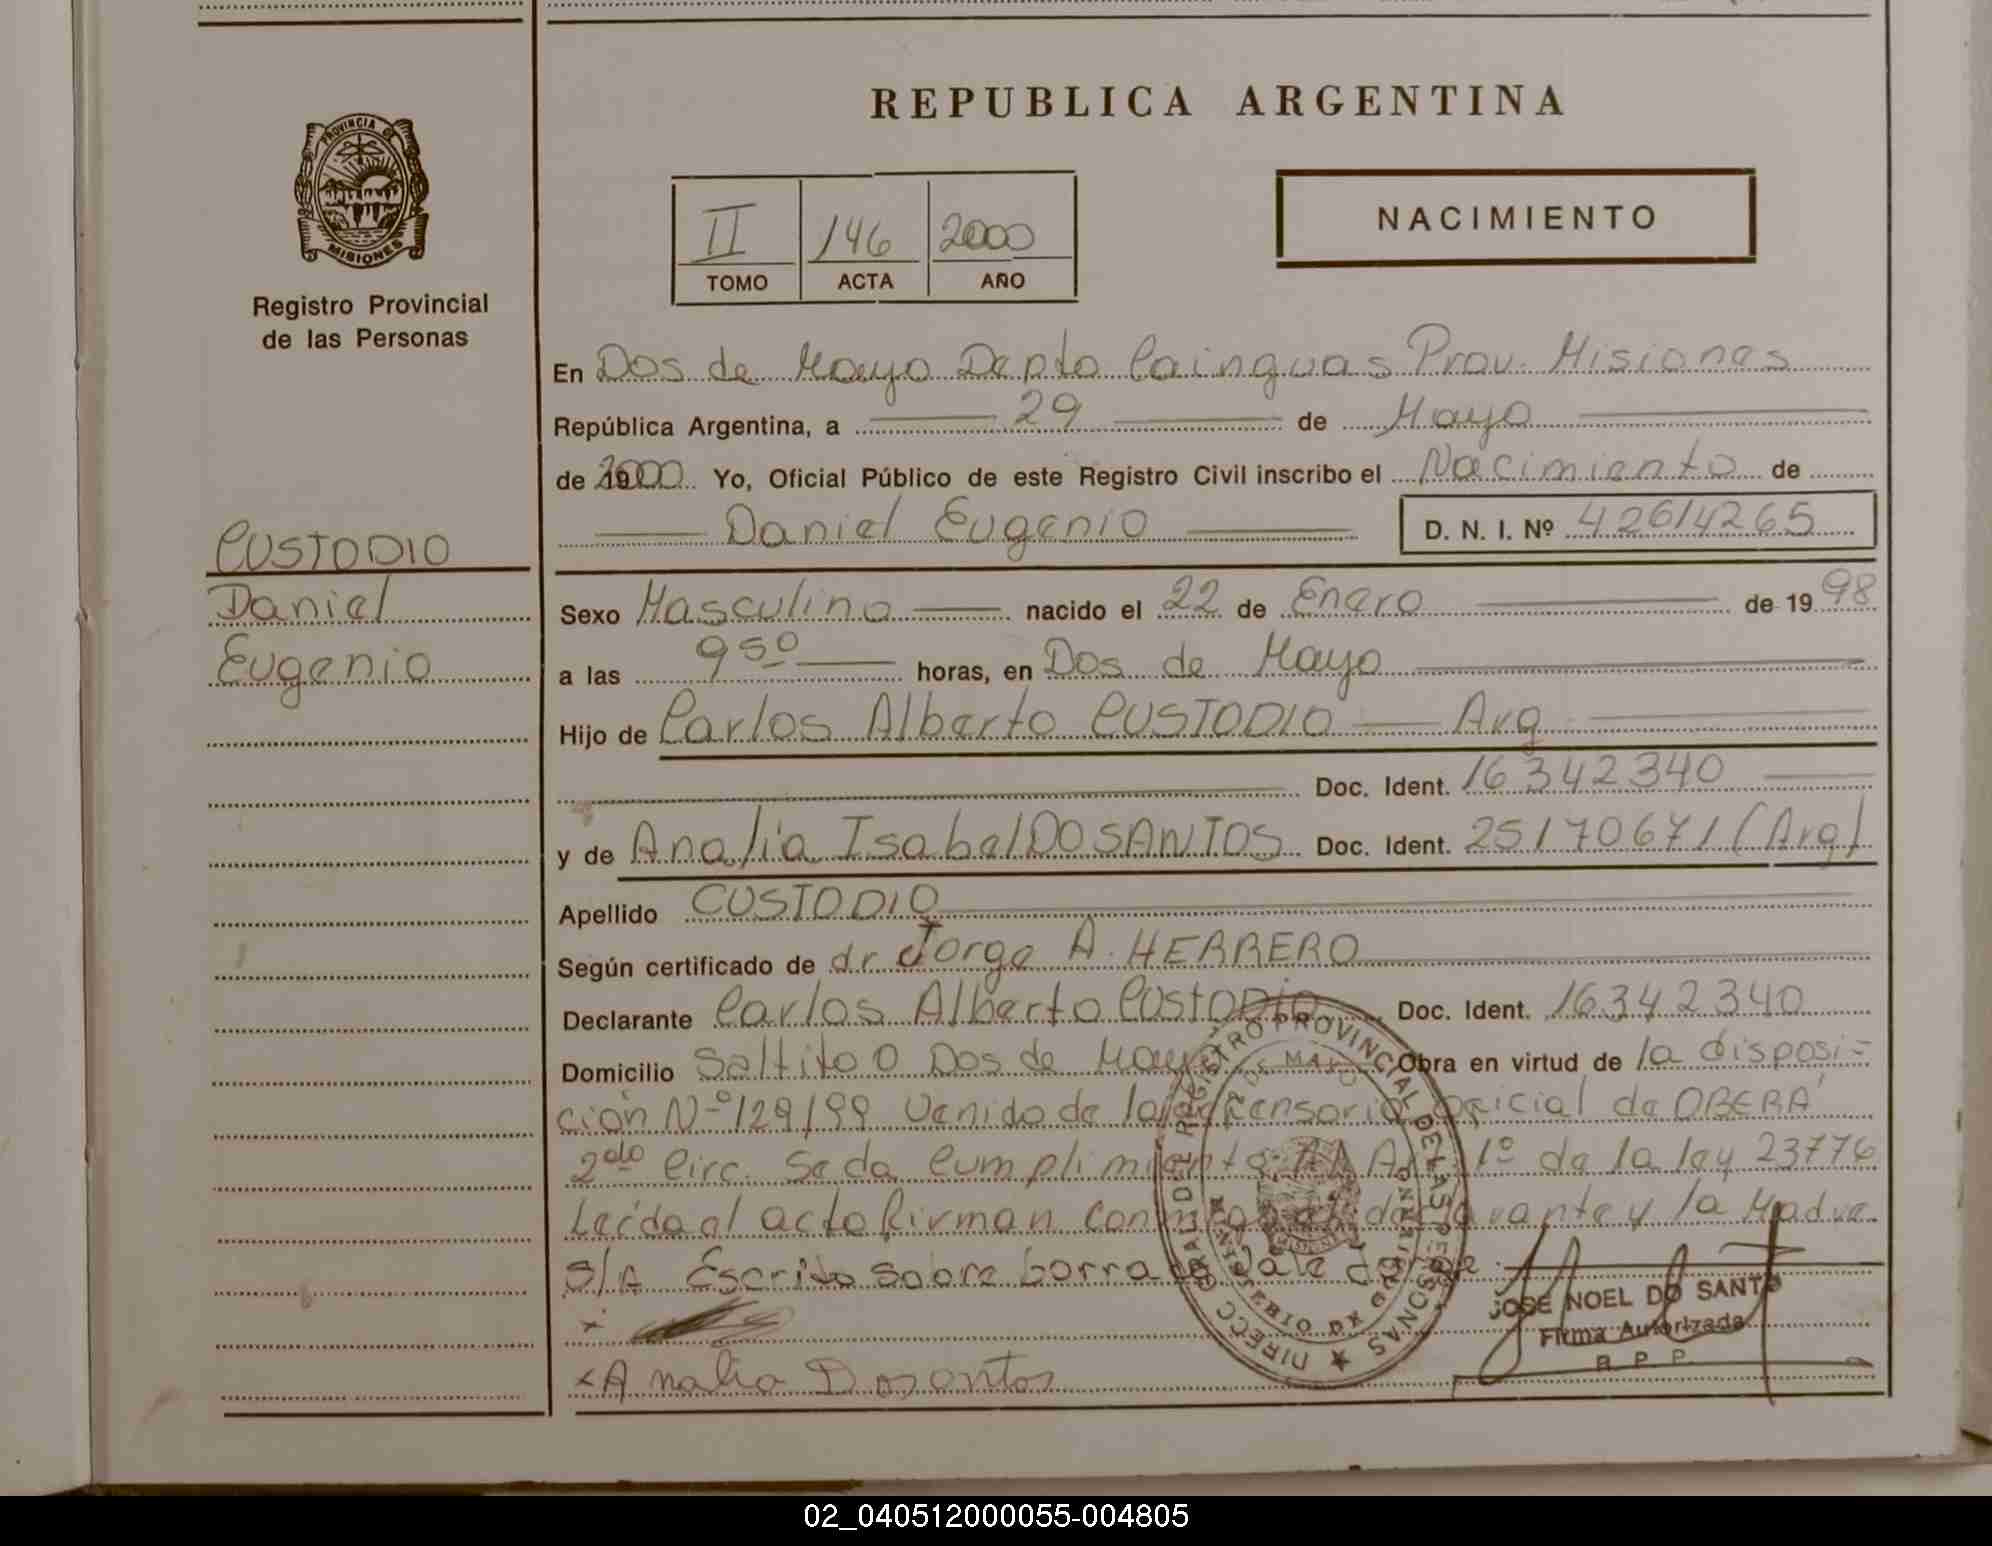 REPUBLICA ARGENTINA
PROVINCIA DE
MISIONES
Registro Provincial
de las Personas
II 146 2000
TOMO ACTA AÑO
NACIMIENTO
En Dos de Mayo Depto Cainguas Prov. Misiones
República Argentina, a 29 de Mayo
de 2000 Yo, Oficial Público de este Registro Civil inscribo el Nacimiento de
Daniel Eugenio D. N. I. Nº 42614265
CUSTODIO
Daniel
Eugenio
Sexo Masculino nacido el 22 de Enero de 1998
a las 9 50 horas, en Dos de Mayo
Hijo de Carlos Alberto CUSTODIO Arg
Doc. Ident. 16342340
y de Analia Isabel DO SANTOS Doc. Ident. 25170671 (Arg)
Apellido CUSTODIO
Según certificado de dr Jorge A. HERRERO
Declarante Carlos Alberto CUSTODIO Doc. Ident. 16342340
Domicilio Saltito O Dos de Mayo Obra en virtud de la disposi=
ción Nº 129/99 Venido de la defensoria oficial de OBERA
2do Circ. Se da Cumplimiento Al Art 1º de la ley 23776
Leida el acta firman conmigo el declarante y la Madre
S/A Escrito sobre borrado Vale
x
x Analia Dosantos
DIRECC. GRAL. DEL REGISTRO PROVINCIAL DE LAS PERSONAS
MISIONES
JOSE NOEL DO SANTO
Firma Autorizada
R. P. P.
02_040512000055-004805